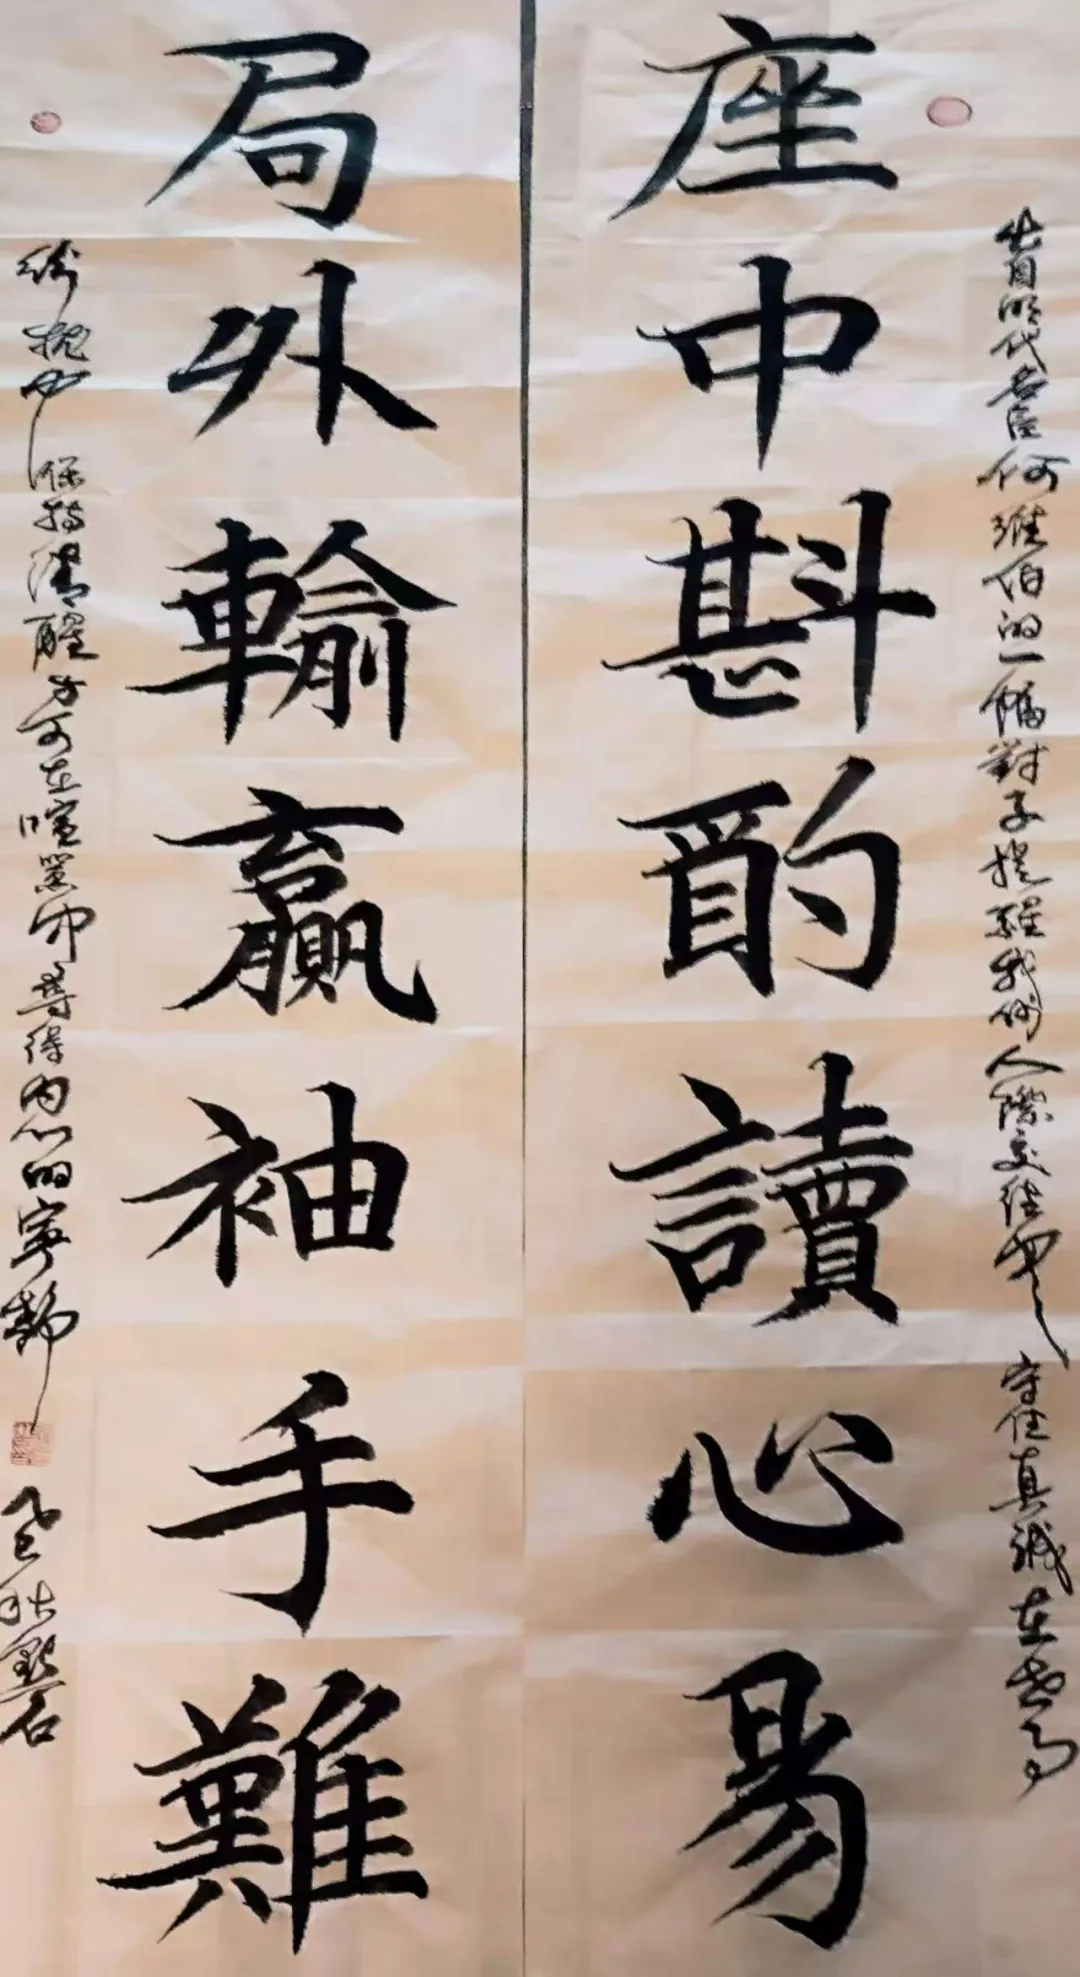 座中斟酌讀心易
局外輸贏袖手難
出自明代名臣何維伯的一幅對子提醒我們人際交往中守住真誠在世局
紛擾中保持清醒方可在喧囂中尋得内心的寧靜
乙巳秋